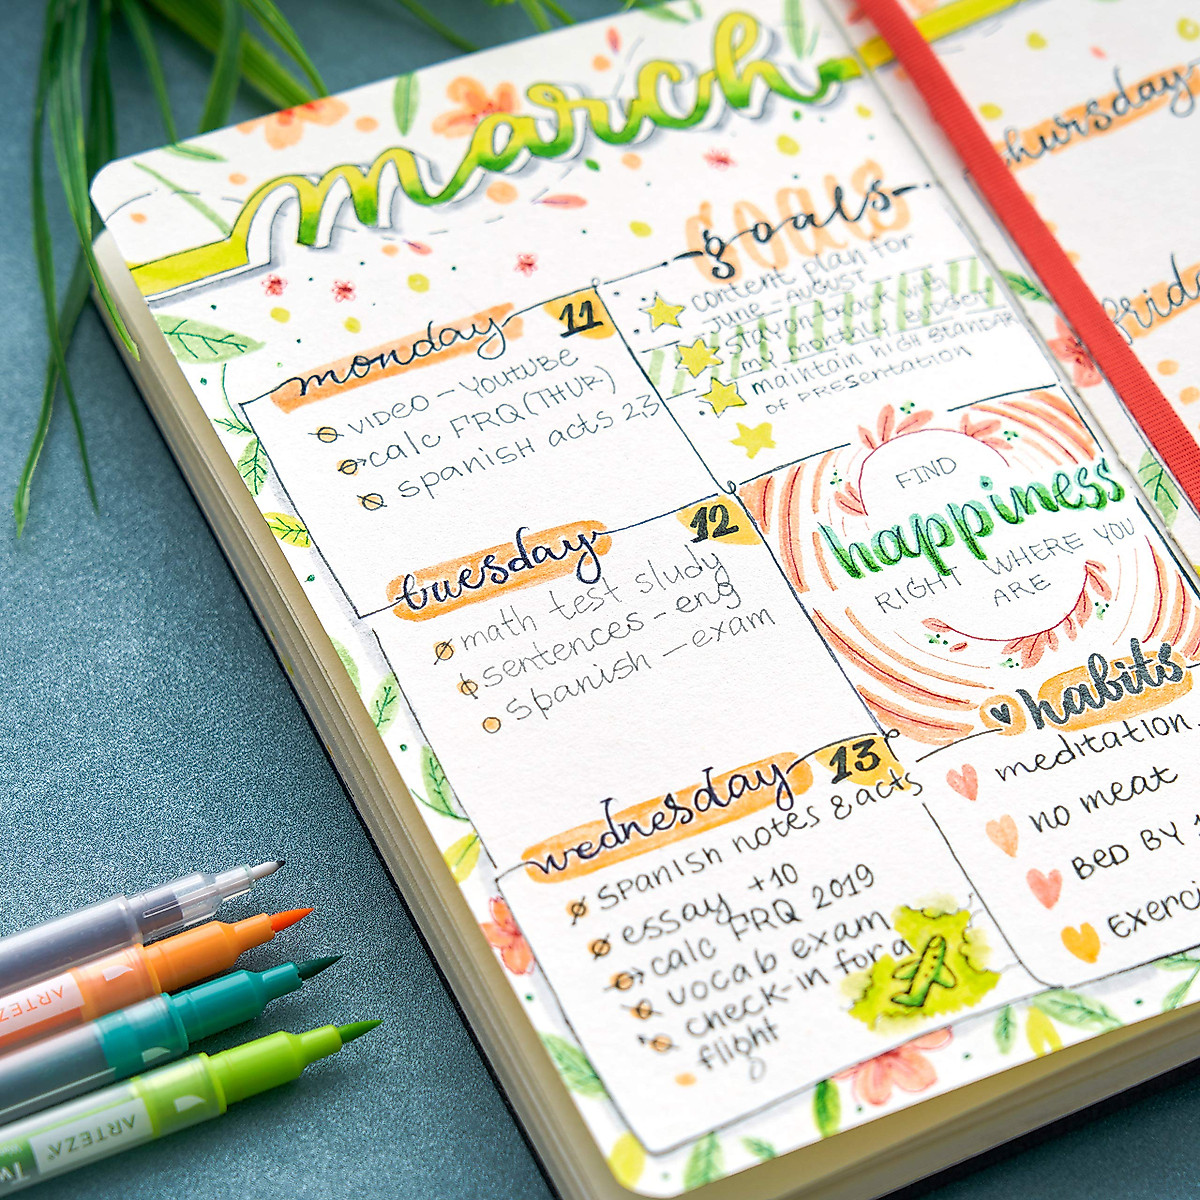 march
monday 11
VIDEO - YouTUBE
calc FRQ (THUR)
spanish acts 23
tuesday 12
math test study
sentences - eng
spanish - exam
wednesday 13
SPANISH notes & acts
essay +10
calc FRQ 2019
vocab exam
check-in for a
flight
goals
content plan for
JUNE - AUGUST
stay on track with
my monthly
maintain high STANDAR
OF PRESENTATION
FIND
happiness
RIGHT WHERE YOU
ARE
habits
meditation
no meat
BED BY
thursday
ARTEZA
ARTEZA